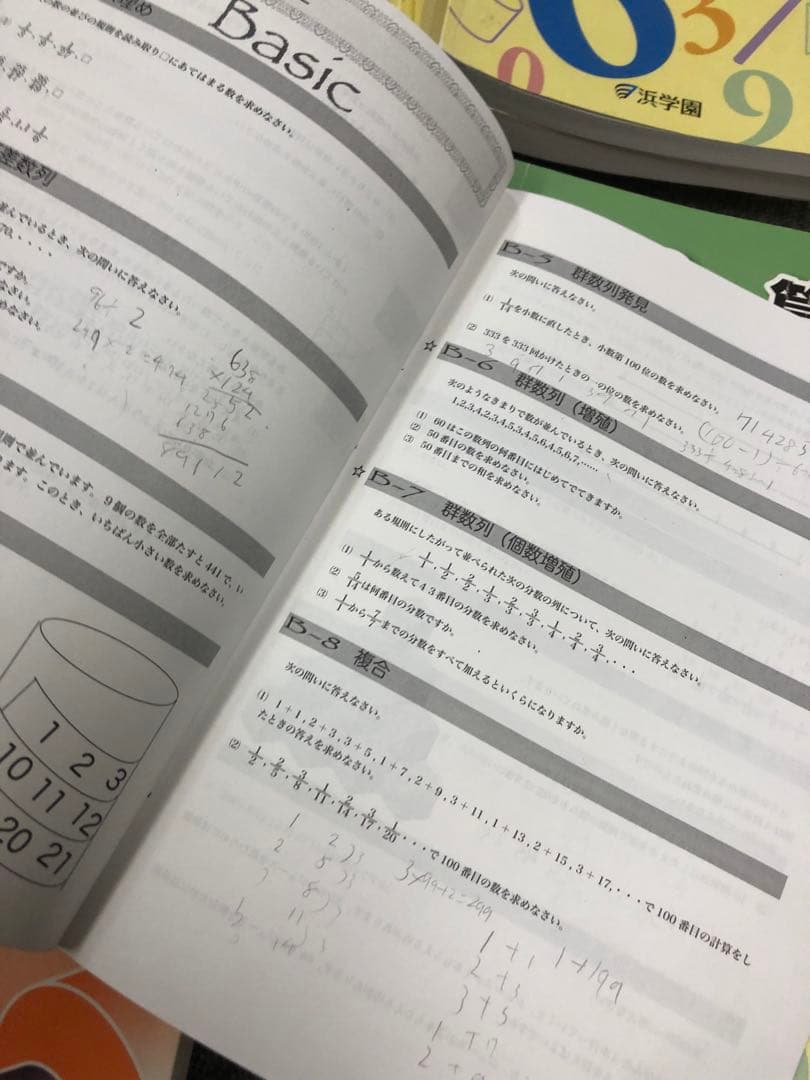 Basic
の数の並びの規則を読み取り□にあてはまる数を求めなさい。
差数列
並んでいるとき、次の問いに答えなさい。
ですか。
なさい。
めなさい。
9x 2
638
規則で並んでいます。9個の数を全部たすと441で、い
ます。このとき、いちばん小さい数を求めなさい。
1 2 3
10 11 12
20 21
6 3
9 9
浜学園
B-5 群数列発見
次の問いに答えなさい。
(1) 1/14を小数に直したとき、小数第100位の数を求めなさい。
(2) 333を333回かけたときの一の位の数を求めなさい。
714285
☆ B-6 群数列（増殖）
次のようなきまりで数が並んでいるとき、次の問いに答えなさい。
1,2,3,4,2,3,4,5,3,4,5,6,4,5,6,7,……
(1) 60はこの数列の何番目にはじめてでてきますか。
(2) 50番目の数を求めなさい。
(3) 50番目までの和を求めなさい。
☆ B-7 群数列（個数増殖）
ある規則にしたがって並べられた次の分数の列について、次の問いに答えなさい。
1/1, 1/2, 2/2, 1/3, 2/3, 3/3, 1/4, 2/4, 3/4, ・・・
(1) 1/1から数えて43番目の分数を求めなさい。
(2) 5/14は何番目の分数ですか。
(3) 1/1から7/7までの分数をすべて加えるといくらになりますか。
B-8 複合
次の問いに答えなさい。
(1) 1+1, 2+3, 3+5, 1+7, 2+9, 3+11, 1+13, 2+15, 3+17, ・・・・で100番目の計算をし
たときの答えを求めなさい。
(2) 1/2, 2/5, 3/8, 1/11, 2/14, 3/17, 1/20, ・・・で100番目の数を求めなさい。
1 2 〉3
2 5 〉3
3 8 〉3
11 〉3
3×99+2=299
1+1 1+199
2+3
3+5
1+7
2+9